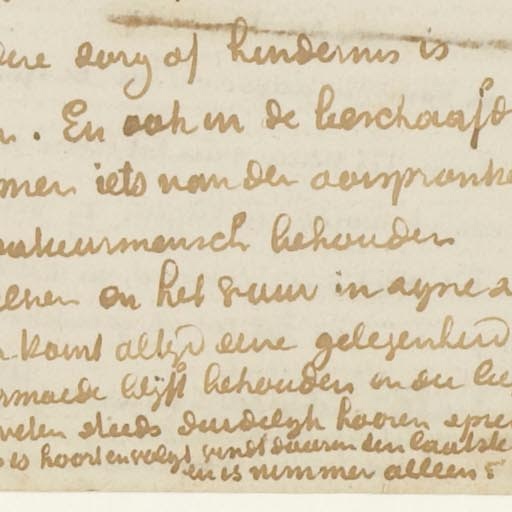 zorg of hindernis is
. En ook in de beschaafd
men iets van den oorspronke
natuurmensch behouden
en het vuur in zyne
komt altyd eene gelegenheid
blyft behouden in de
steeds duidelyk hooren spre
is hoort en volgt vindt daarin den laatste
en is nimmer alleen.